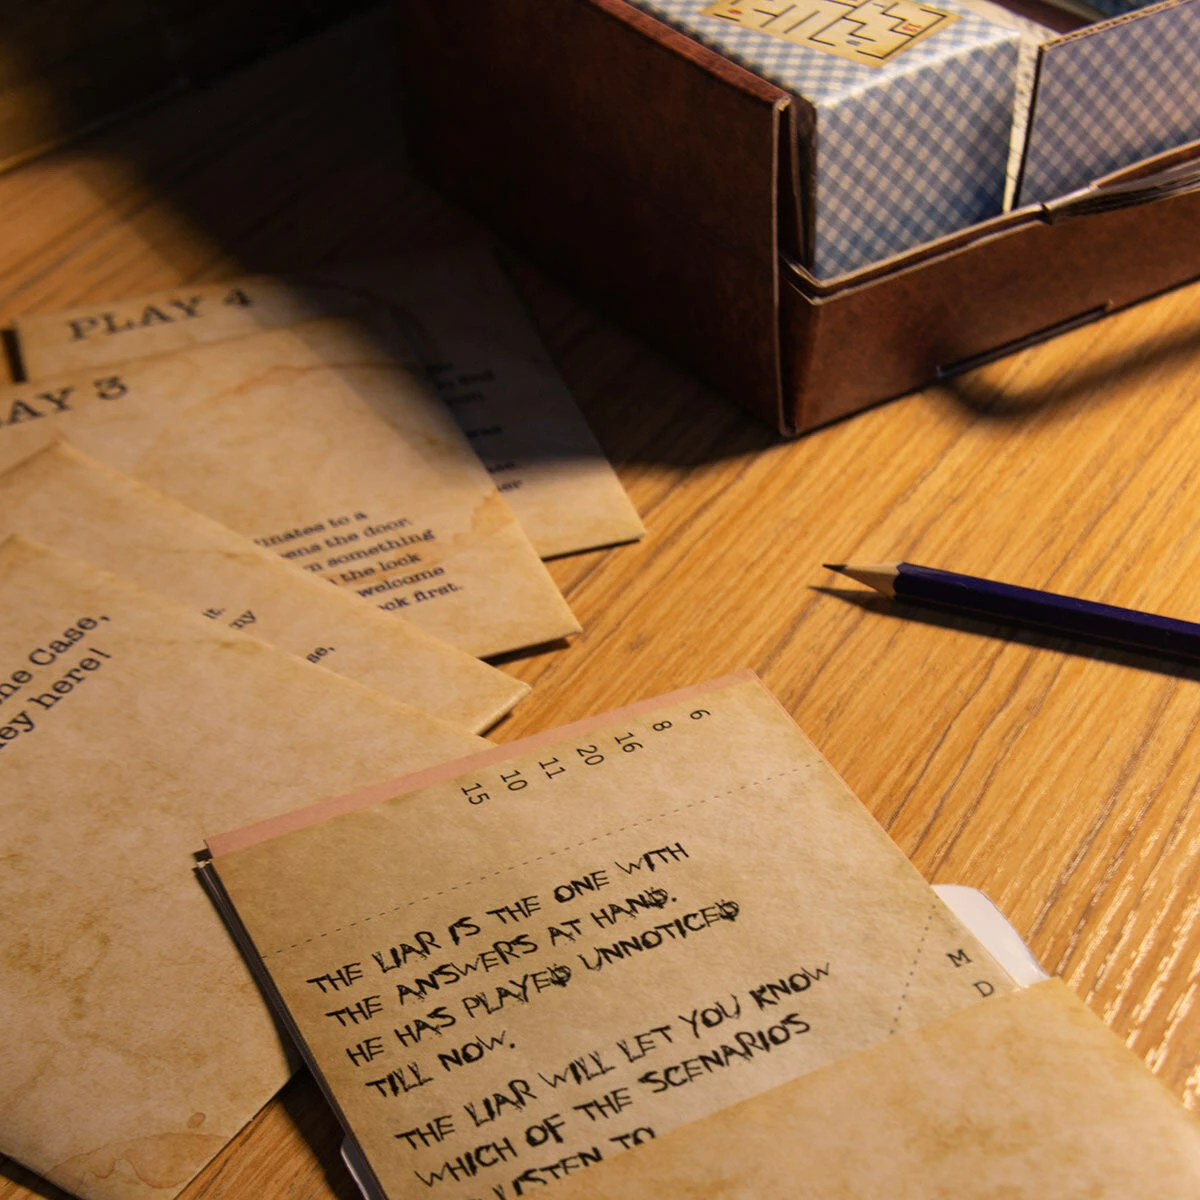 PLAY 4
AY 3
to a
the door.
something
the lock
welcome
first.
Case,
here!
6
8
16
20
11
10
15
THE LIAR IS THE ONE WITH
THE ANSWERS AT HAND.
HE HAS PLAYED UNNOTICED
TILL NOW.
THE LIAR WILL LET YOU KNOW
WHICH OF THE SCENARIOS
LISTEN TO
M
D